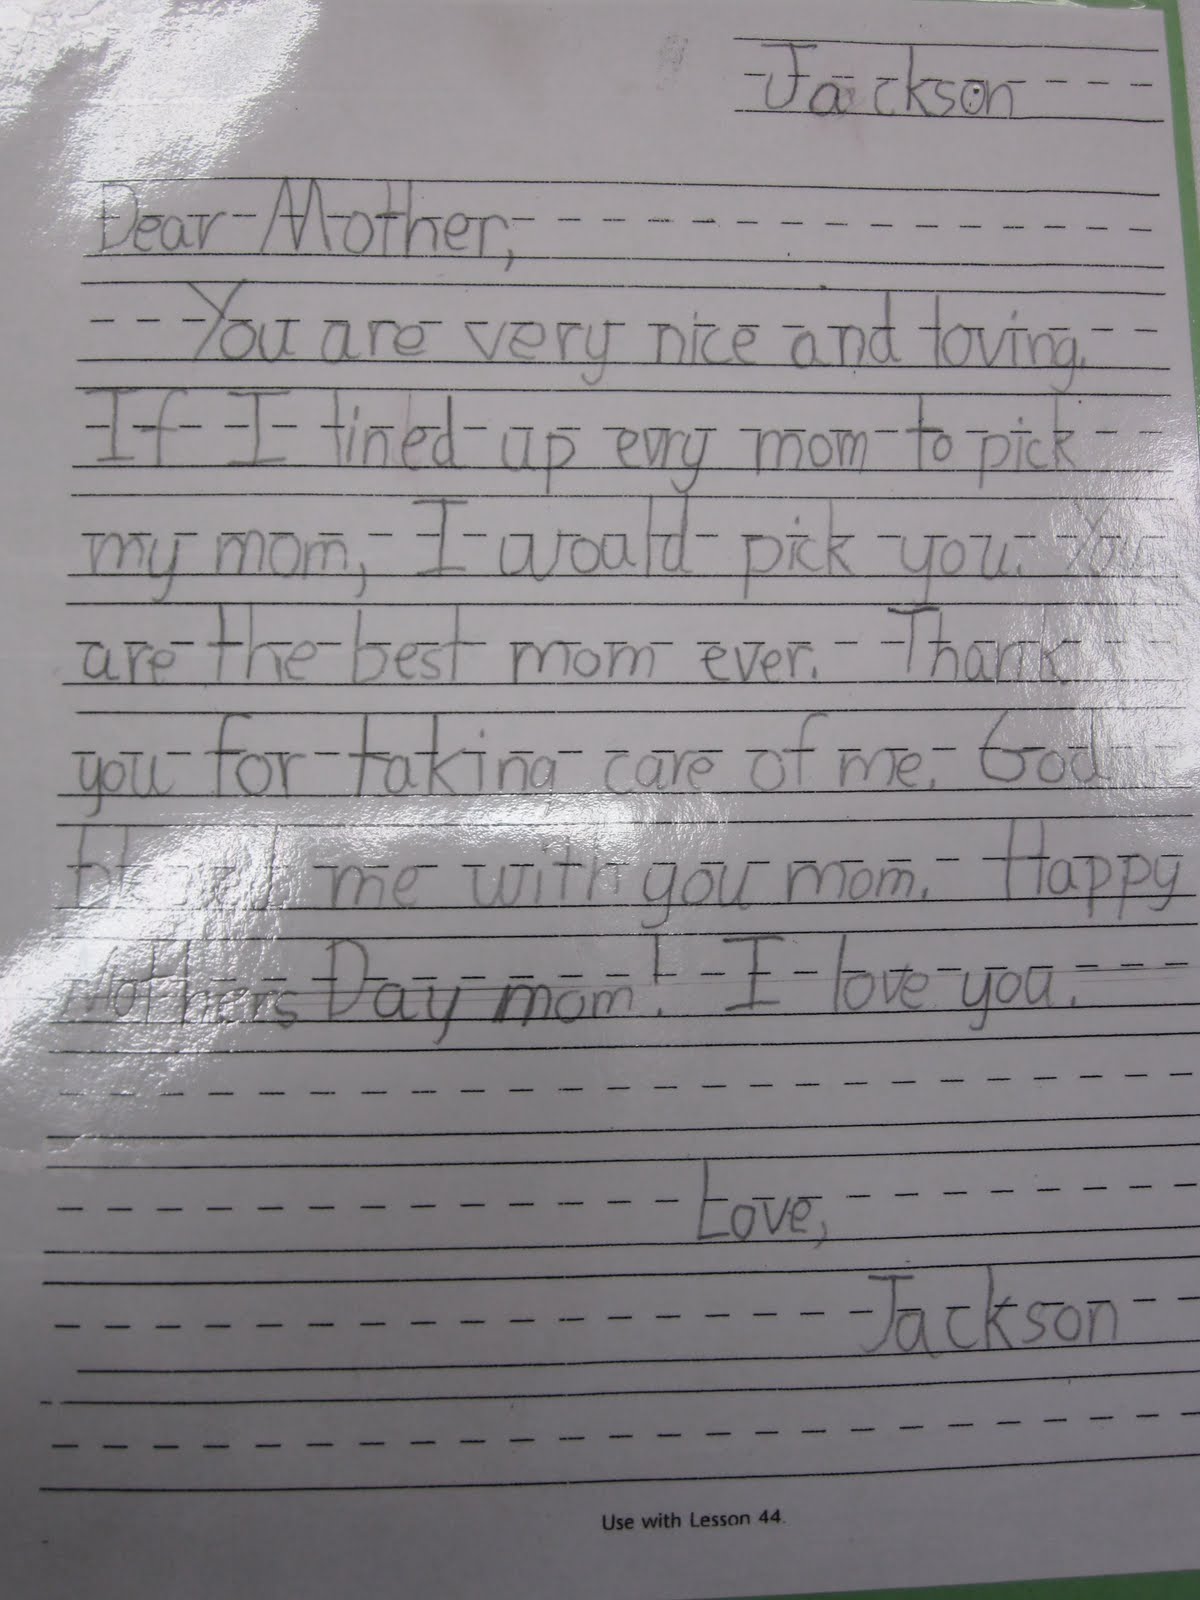 Jackson
Dear Mother,
You are very nice and loving.
If I lined up evry mom to pick
my mom, I would pick you. You
are the best mom ever. Thank
you for taking care of me. God
me with you mom. Happy
Mothers Day mom! I love you.
Love,
Jackson
Use with Lesson 44.